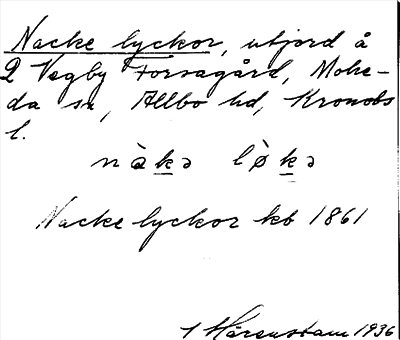 Nacke lyckor, utjord å
2 Vegby Forsagård, Mohe-
da sn, Allbo hd, Kronobs
l.
nàkə løkə
Nacke lyckor kb 1861
Härenstam 1936